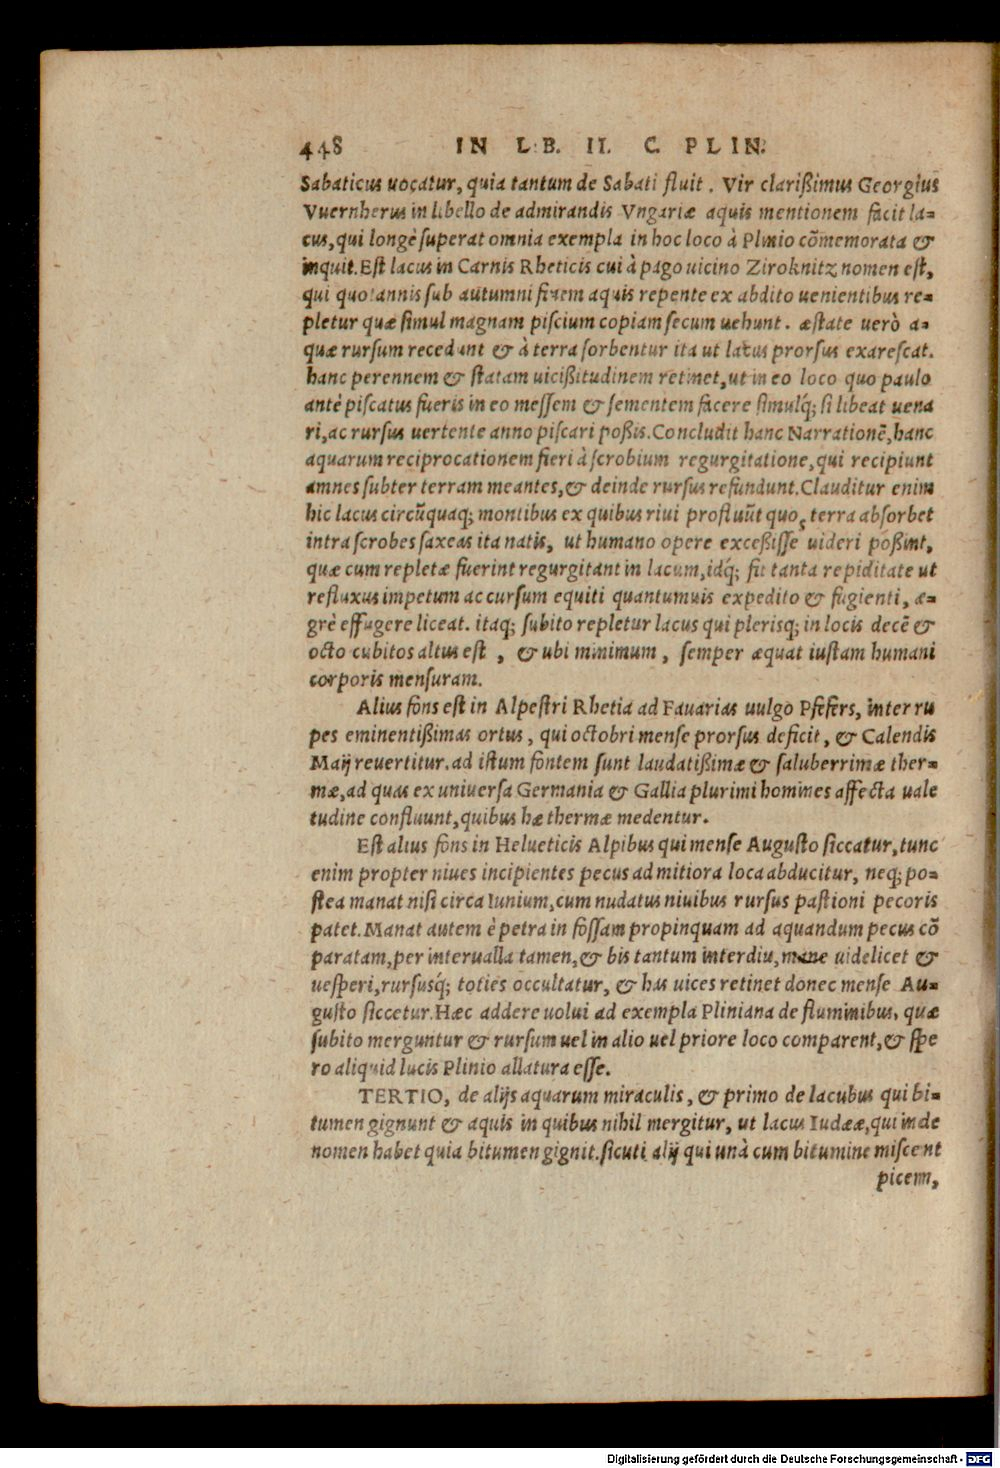 448 IN LIB. II. C. PLIN.
Sabaticus uocatur, quia tantum de Sabati fluit. Vir clarißimus Georgius
Vuernherus in libello de admirandis Vngariæ aquis mentionem facit la=
cus, qui longè superat omnia exempla in hoc loco à Plinio cõmemorata &
inquit. Est lacus in Carnis Rheticis cui à pago uicino Ziroknitz nomen est,
qui quotannis sub autumni finem aquis repente ex abdito uenientibus re=
pletur quæ simul magnam piscium copiam secum uehunt. æstate uerò a=
quæ rursum recedunt & à terra sorbentur ita ut lacus prorsus exarescat.
hanc perennem & statam uicißitudinem retinet, ut in eo loco quo paulo
antè piscatus fueris in eo messem & sementem facere simulq́; si libeat uena
ri, ac rursus uertente anno piscari poßis. Concludit hanc Narrationẽ, hanc
aquarum reciprocationem fieri à scrobium regurgitatione, qui recipiunt
amnes subter terram meantes, & deinde rursus refundunt. Clauditur enim
hic lacus circũquaq; montibus ex quibus riui profluũt quos terra absorbet
intra scrobes saxeas ita natis, ut humano opere exceßisse uideri poßint,
quæ cum repletæ fuerint regurgitant in lacum, idq́; fit tanta repiditate ut
refluxus impetum ac cursum equiti quantumuis expedito & fugienti, æ=
grè effugere liceat. itaq; subito repletur lacus qui plerisq; in locis decẽ &
octo cubitos altus est, & ubi minimum, semper æquat iustam humani
corporis mensuram.
Alius fons est in Alpestri Rhetia ad Fauarias uulgo Pfefers, inter ru
pes eminentißimas ortus, qui octobri mense prorsus deficit, & Calendis
Maij reuertitur. ad istum fontem sunt laudatißimæ & saluberrimæ ther=
mæ, ad quas ex uniuersa Germania & Gallia plurimi homines affecta uale
tudine confluunt, quibus hæ thermæ medentur.
Est alius fons in Helueticis Alpibus qui mense Augusto siccatur, tunc
enim propter niues incipientes pecus ad mitiora loca abducitur, neq; po=
stea manat nisi circa Iunium, cum nudatus niuibus rursus pastioni pecoris
patet. Manat autem è petra in fossam propinquam ad aquandum pecus cõ
paratam, per interualla tamen, & bis tantum interdiu, mane uidelicet &
uesperi, rursusq́; toties occultatur, & has uices retinet donec mense Au=
gusto siccetur. Hæc addere uolui ad exempla Pliniana de fluminibus, quæ
subito merguntur & rursum uel in alio uel priore loco comparent, & spe
ro aliquid lucis Plinio allatura esse.
TERTIO, de alijs aquarum miraculis, & primo de lacubus qui bi=
tumen gignunt & aquis in quibus nihil mergitur, ut lacus Iudææ, qui inde
nomen habet quia bitumen gignit. sicuti alij qui unà cum bitumine miscent
picem,
Digitalisierung gefördert durch die Deutsche Forschungsgemeinschaft - DFG